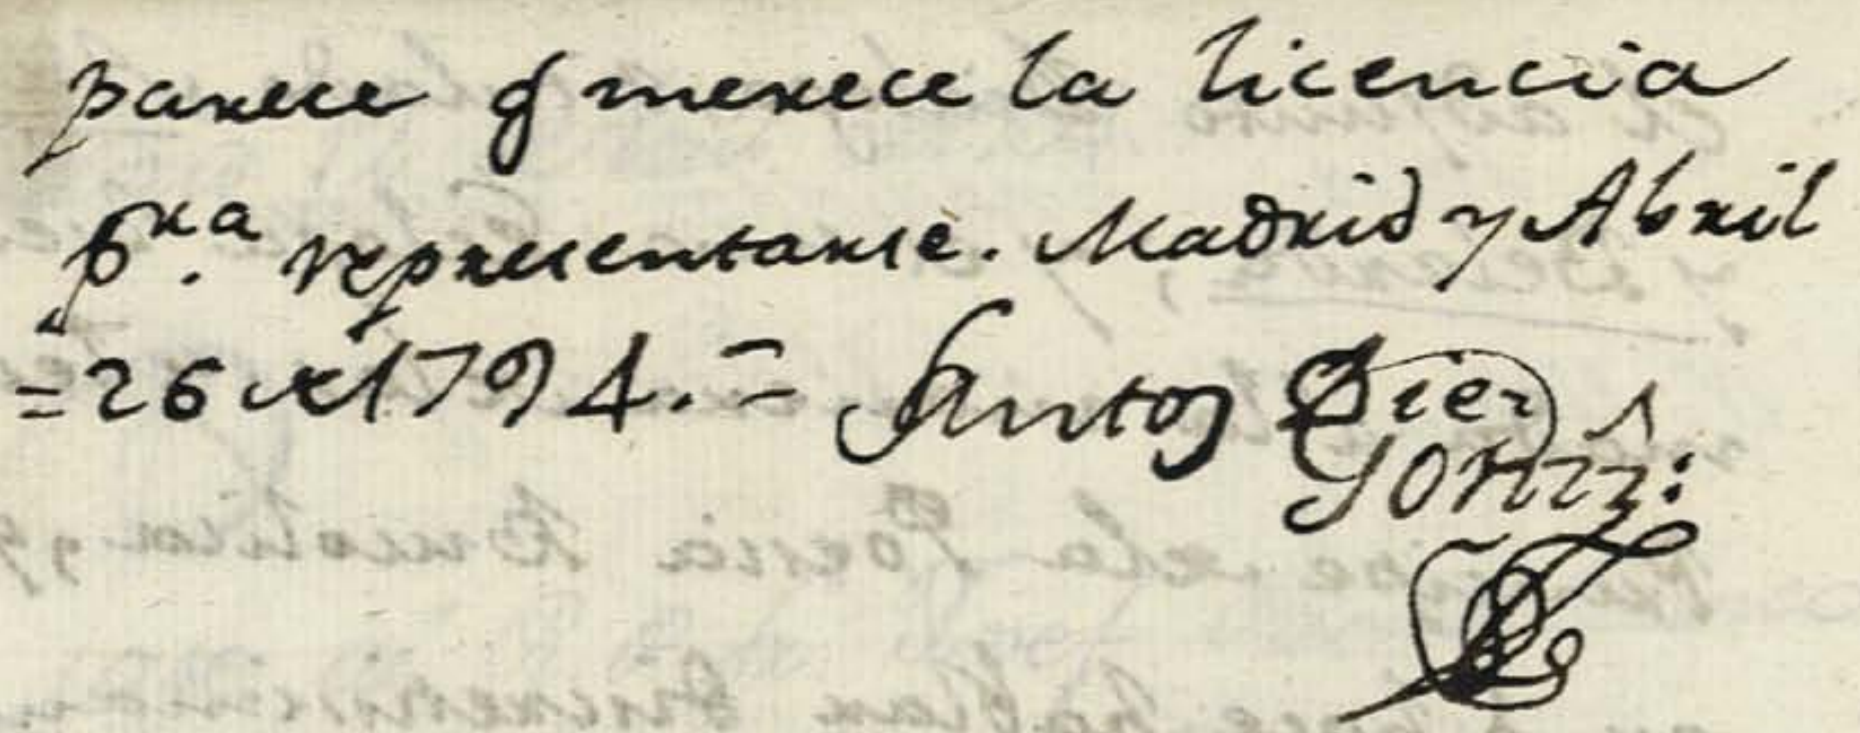 parece q merece la licencia
p.ra representarse. Madrid y Abril
= 26 de 1794. = Santos Diez
Gonzz: